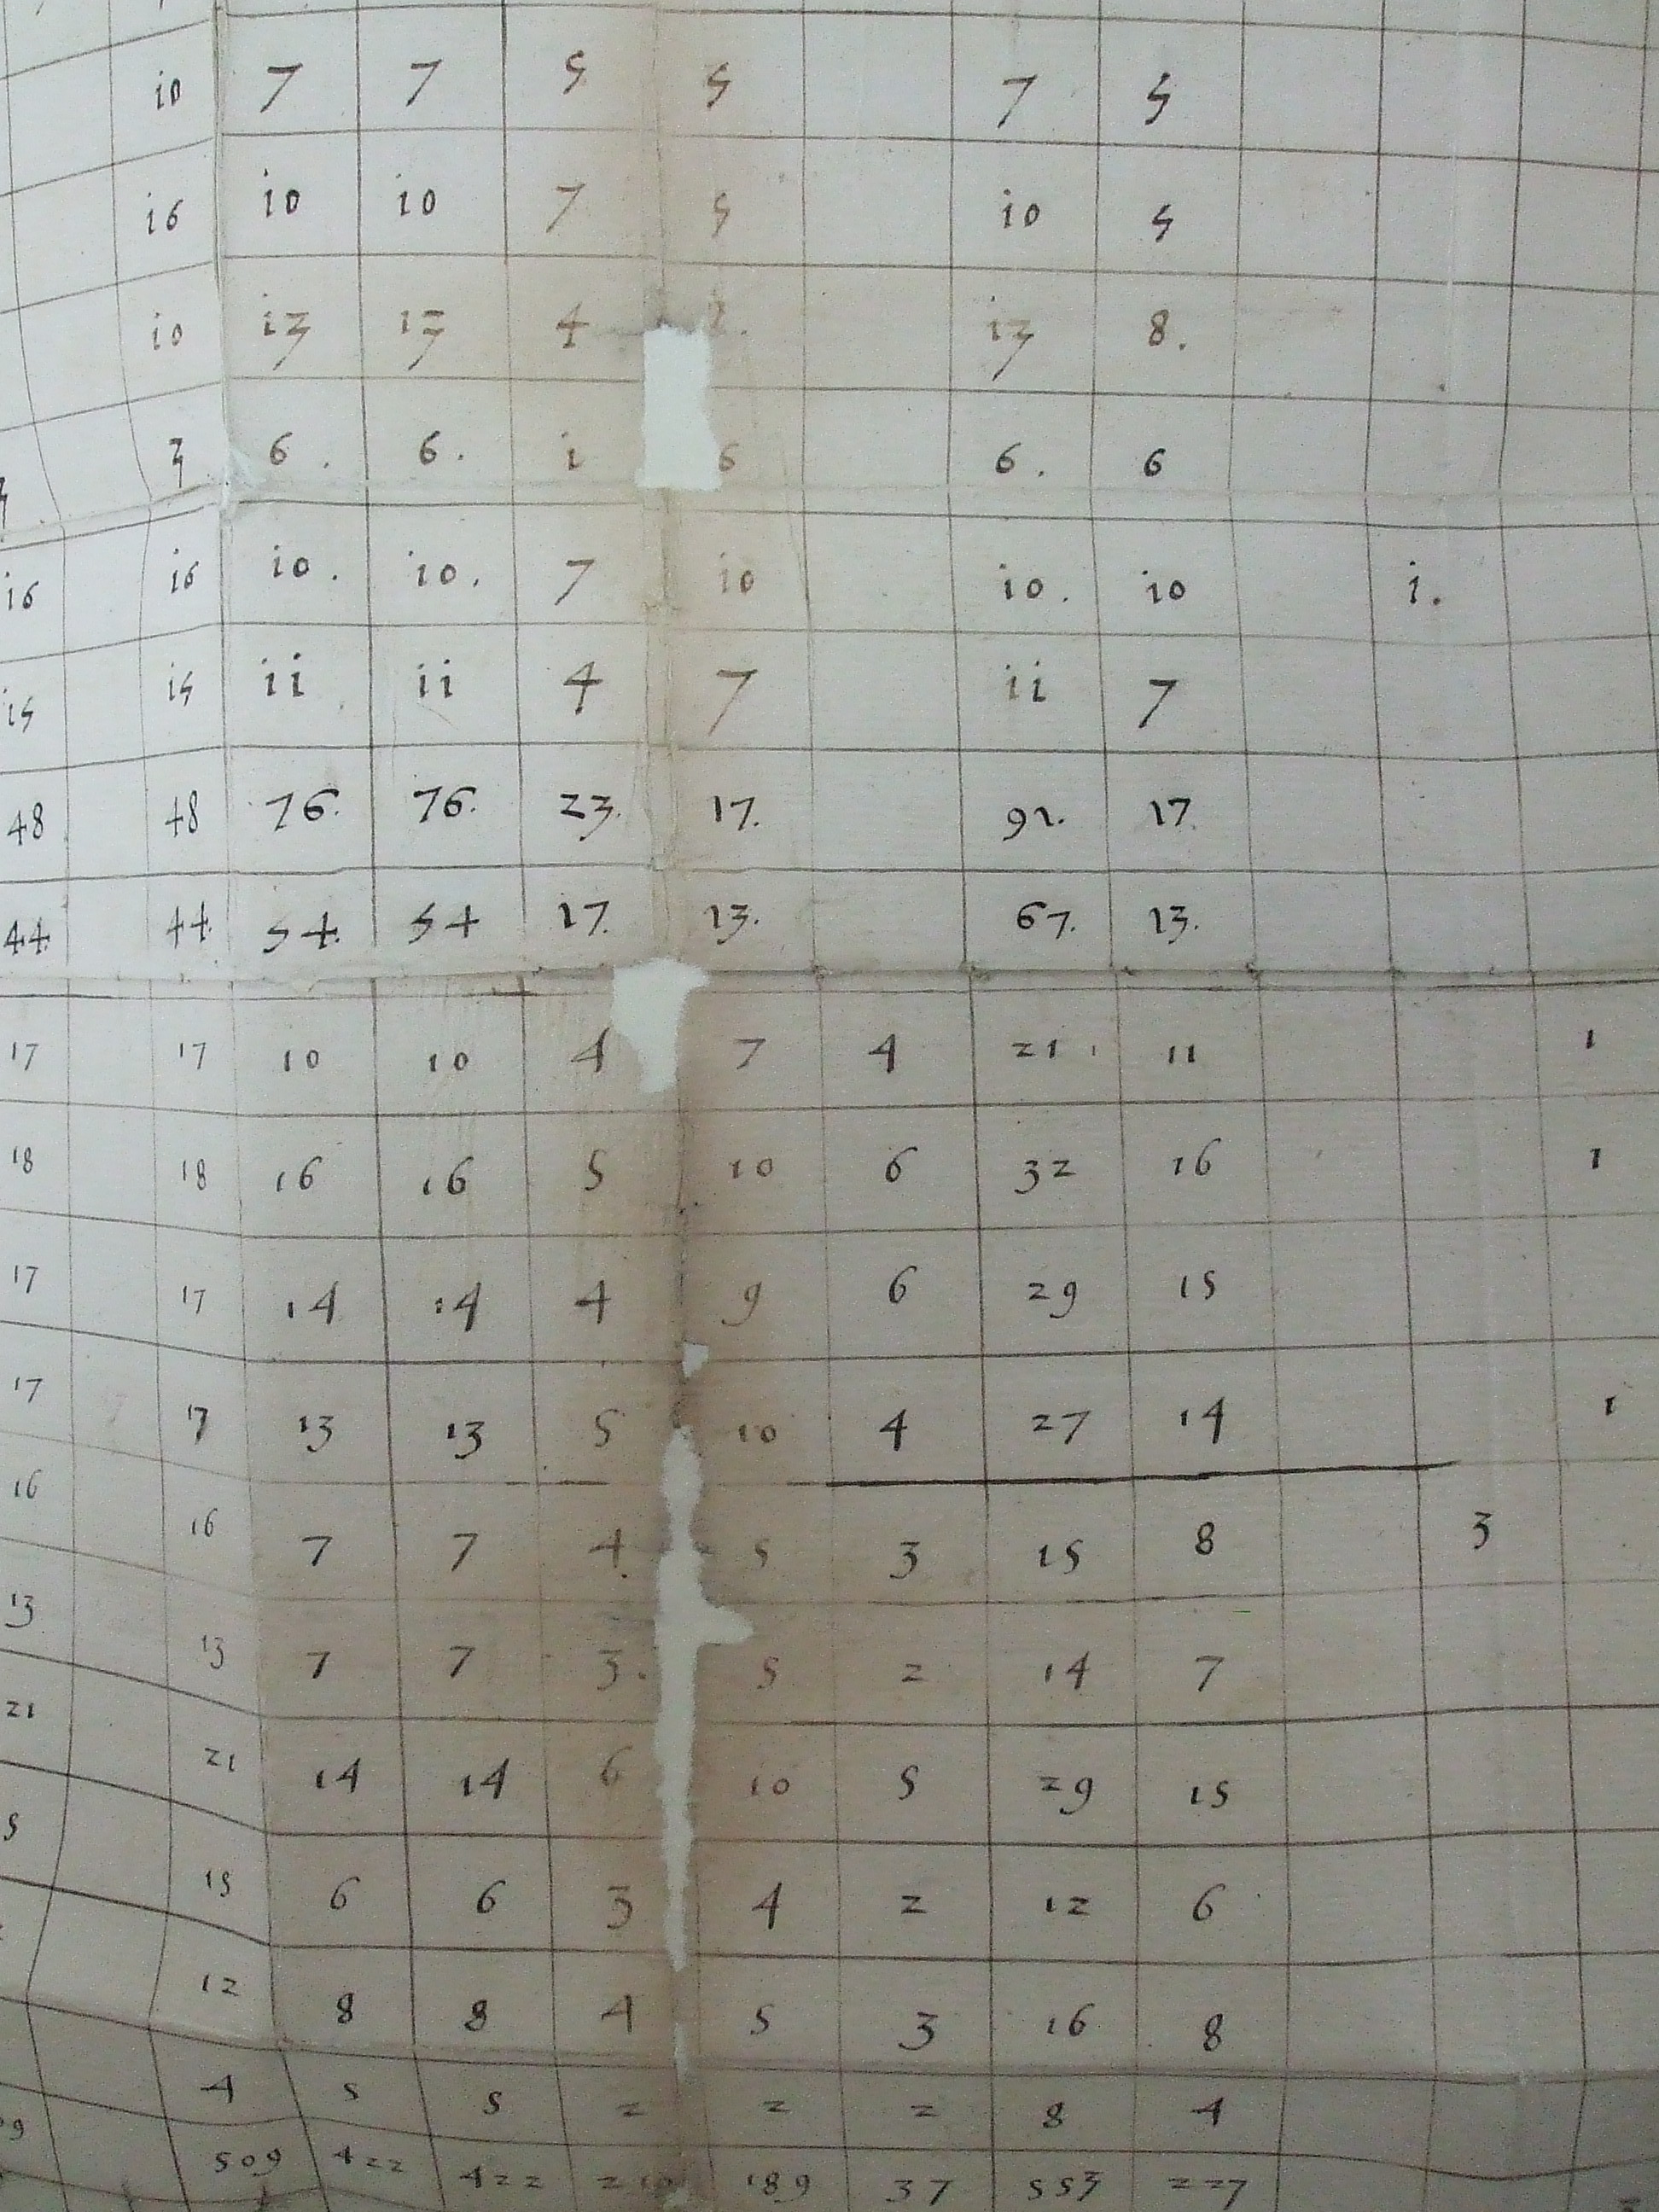 i0 7 7 5 5 7 5
i6 i0 i0 7 5 i0 5
i0 i3 i3 4 i3 8.
3 6. 6. i 6 6. 6
i6 i6 i0. i0. 7 i0 i0. i0 i.
i5 i5 ii ii 4 7 ii 7
48 48 76. 76. 23. 17. 92. 17.
44 44. 54. 54 17. 13. 67. 13.
17 17 10 10 4 7 4 21 11 1
18 18 16 16 5 10 6 32 16 1
17 17 14 14 4 9 6 29 15
17 17 13 13 5 10 4 27 14 1
16 16 7 7 4. 5 3 15 8 3
13 13 7 7 3. 5 2 14 7
21 21 14 14 6 10 5 29 15
5 15 6 6 3 4 2 12 6
12 8 8 4 5 3 16 8
4 5 5 2 2 2 8 4
509 422 422 189 37 553 227